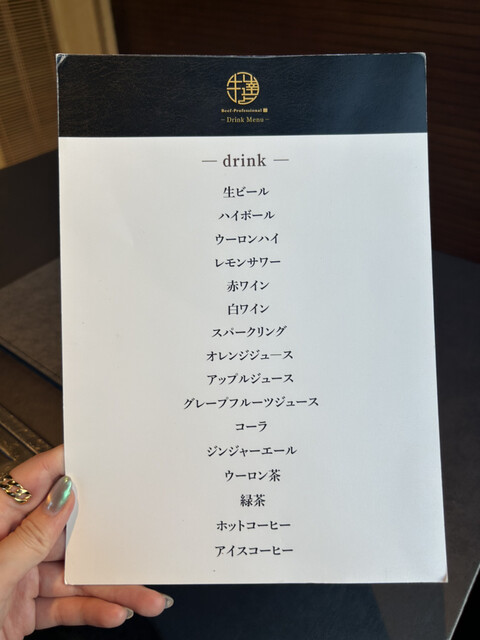 Beef-Professional
– Drink Menu –
— drink —
生ビール
ハイボール
ウーロンハイ
レモンサワー
赤ワイン
白ワイン
スパークリング
オレンジジュース
アップルジュース
グレープフルーツジュース
コーラ
ジンジャーエール
ウーロン茶
緑茶
ホットコーヒー
アイスコーヒー